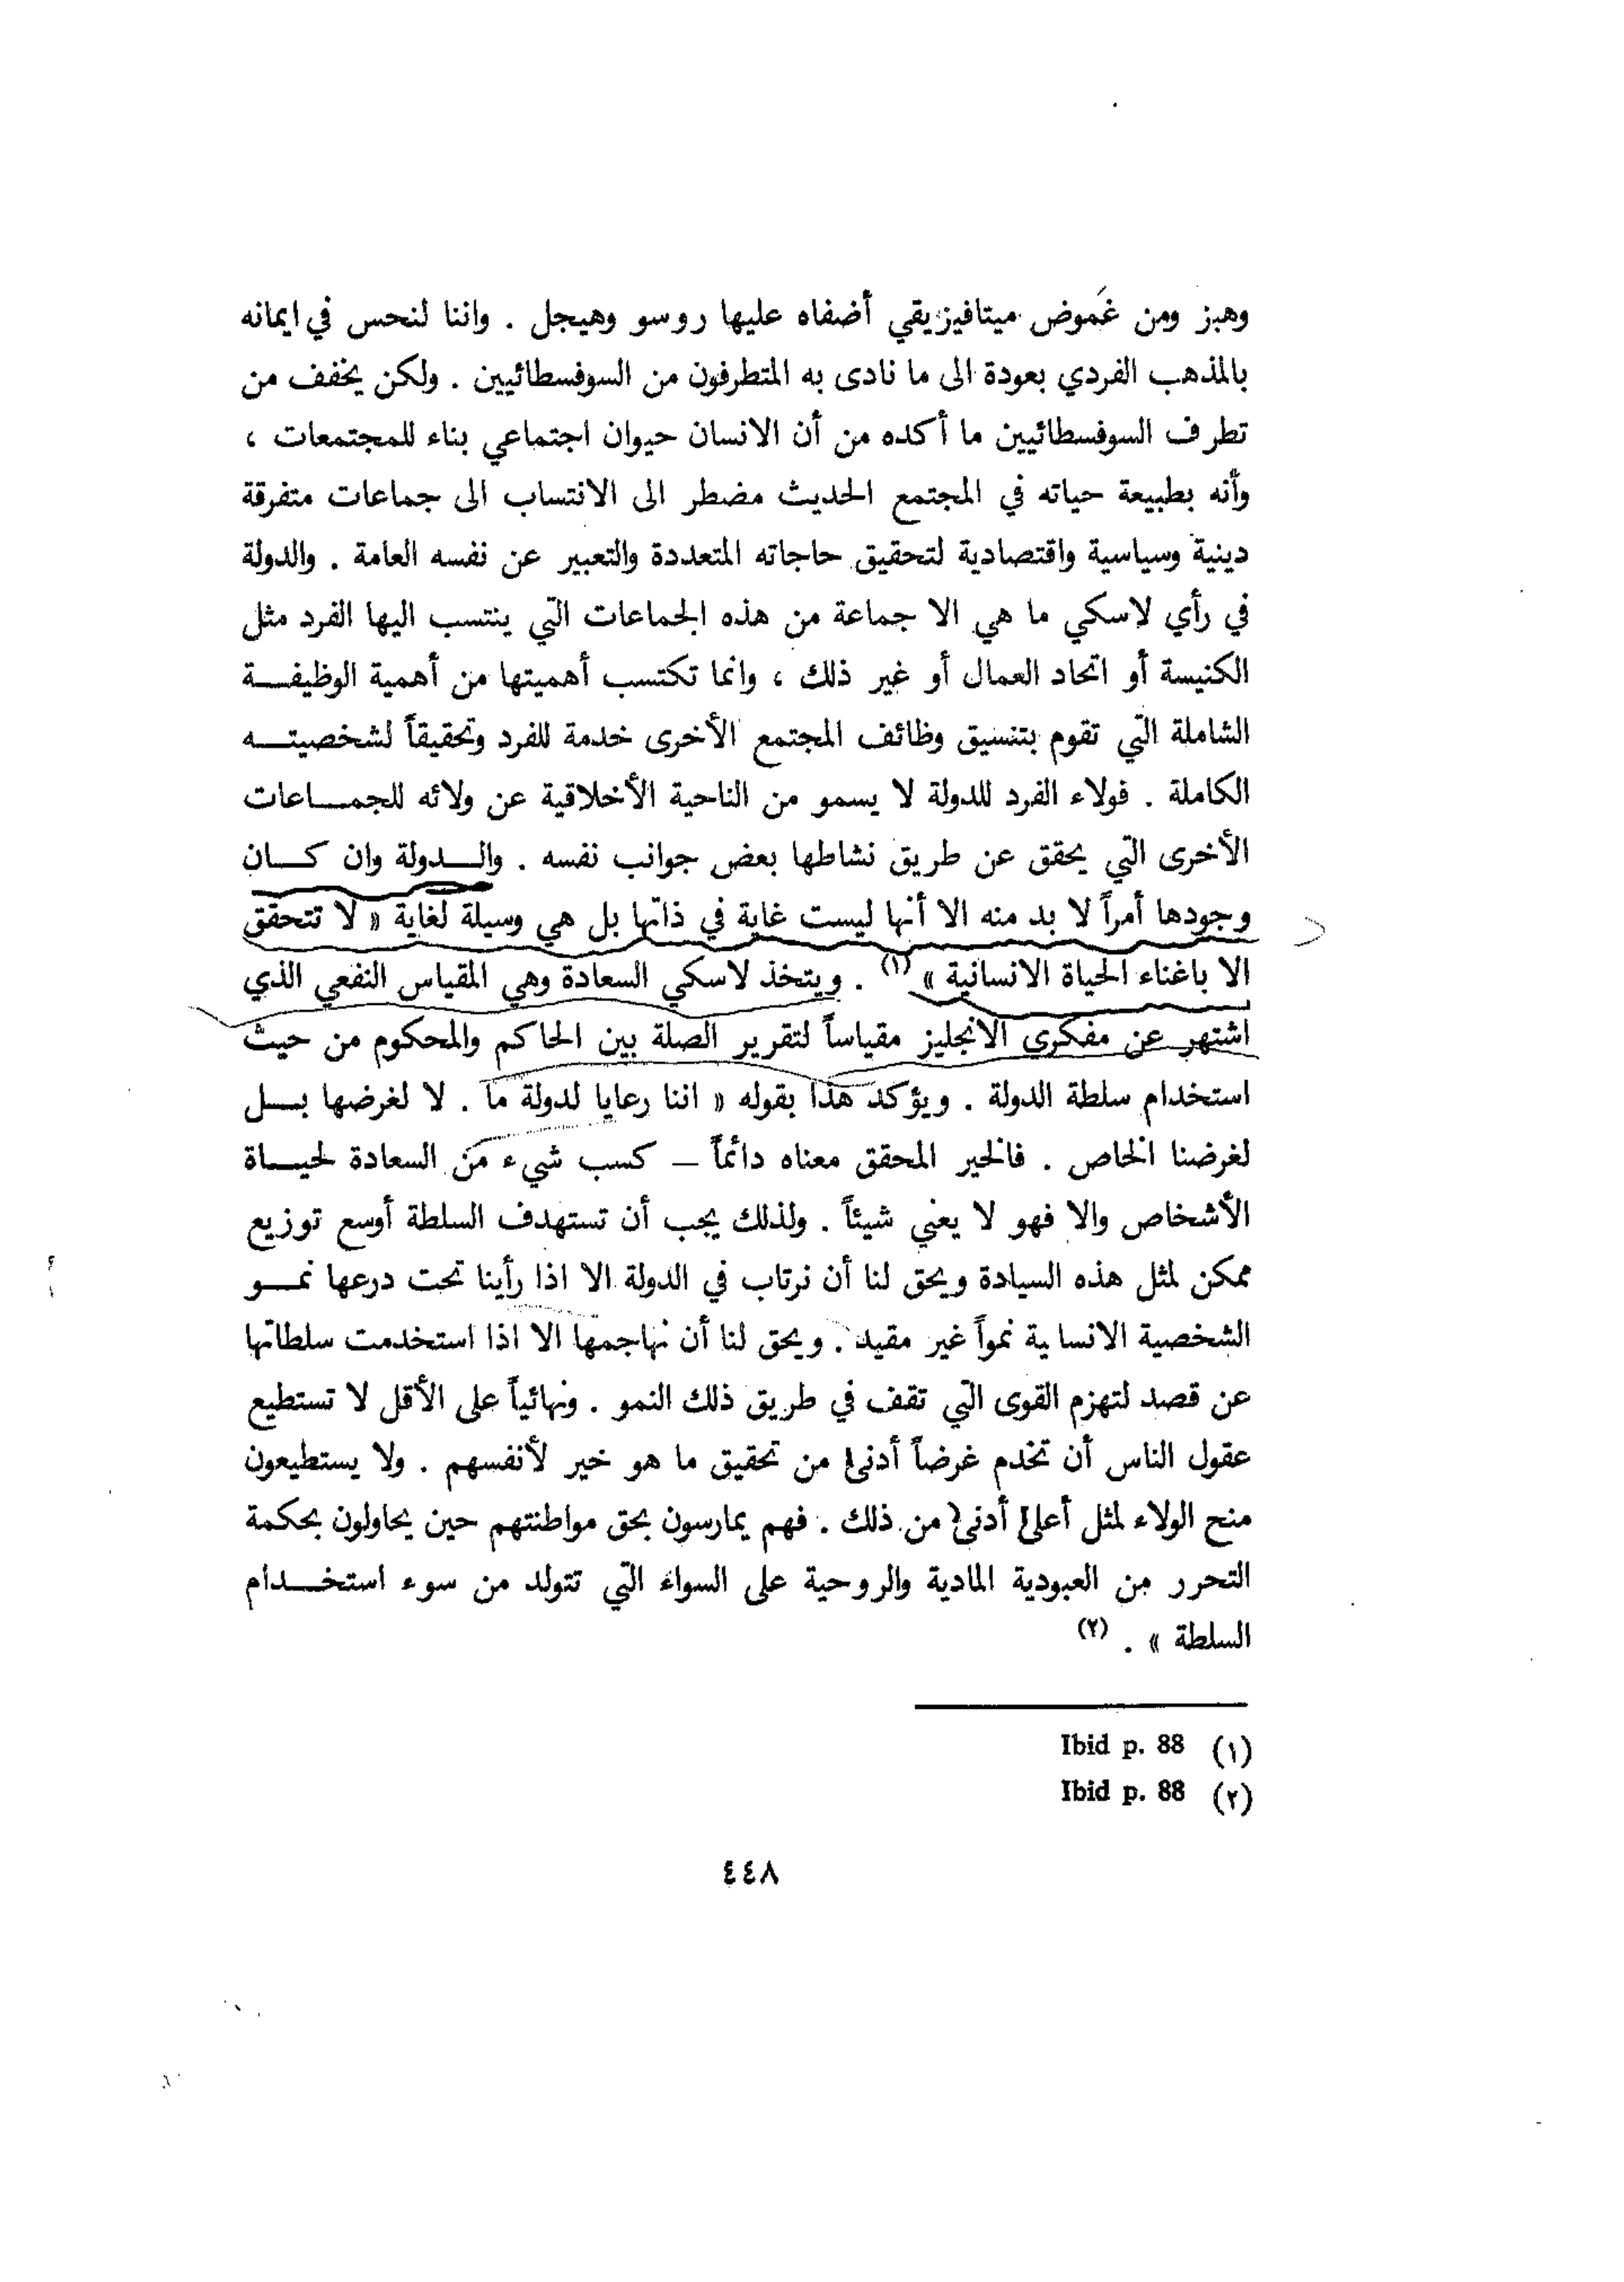 وهبز ومن غموض ميتافيزيقي أضفاه عليها روسو وهيجل . واننا لنحس في ايمانه
بالمذهب الفردي بعودة الى ما نادى به المتطرفون من السوفسطائيين . ولكن يخفف من
تطرف السوفسطائيين ما أكده من أن الانسان حيوان اجتماعي بناء للمجتمعات ،
وأنه بطبيعة حياته في المجتمع الحديث مضطر الى الانتساب الى جماعات متفرقة
دينية وسياسية واقتصادية لتحقيق حاجاته المتعددة والتعبير عن نفسه العامة . والدولة
في رأي لاسكي ما هي الا جماعة من هذه الجماعات التي ينتسب اليها الفرد مثل
الكنيسة أو اتحاد العمال أو غير ذلك ، وانما تكتسب أهميتها من أهمية الوظيفــة
الشاملة التي تقوم بتنسيق وظائف المجتمع الأخرى خدمة للفرد وتحقيقاً لشخصيتــه
الكاملة . فولاء الفرد للدولة لا يسمو من الناحية الأخلاقية عن ولائه للجمــاعات
الأخرى التي يحقق عن طريق نشاطها بعض جوانب نفسه . والــدولة وان كــان
وجودها أمراً لا بد منه الا أنها ليست غاية في ذاتها بل هي وسيلة لغاية « لا تتحقق
الا باغناء الحياة الانسانية » (١) . ويتخذ لاسكي السعادة وهي المقياس النفعي الذي
اشتهر عن مفكرى الانجليز مقياساً لتقرير الصلة بين الحاكم والمحكوم من حيث
استخدام سلطة الدولة . ويؤكد هذا بقوله « اننا رعايا لدولة ما . لا لغرضها بــل
لغرضنا الخاص . فالخير المحقق معناه دائماً – كسب شيء من السعادة لحيــاة
الأشخاص والا فهو لا يعني شيئاً . ولذلك يجب أن تستهدف السلطة أوسع توزيع
ممكن لمثل هذه السيادة ويحق لنا أن نرتاب في الدولة الا اذا رأينا تحت درعها نمــو
الشخصية الانسا ية نمواً غير مقيد . ويحق لنا أن نهاجمها الا اذا استخدمت سلطاتها
عن قصد لتهزم القوى التي تقف في طريق ذلك النمو . ونهائياً على الأقل لا تستطيع
عقول الناس أن تخدم غرضاً أدنى من تحقيق ما هو خير لأنفسهم . ولا يستطيعون
منح الولاء لمثل أعلى أدنى من ذلك . فهم يمارسون بحق مواطنتهم حين يحاولون بحكمة
التحرر من العبودية المادية والروحية على السواء التي تتولد من سوء استخــدام
السلطة » . (٢)
(١) Ibid p. 88
(٢) Ibid p. 88
٤٤٨